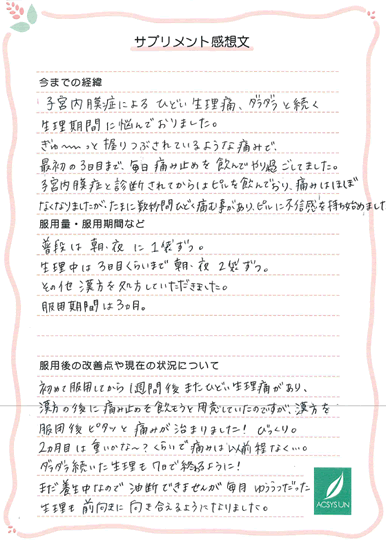 サプリメント感想文
今までの経緯
子宮内膜症による ひどい生理痛、ダラダラと続く
生理期間に悩んでおりました。
ぎゅ〜〜っと握りつぶされているような痛みで、
最初の3日目まで、毎日痛み止めを飲んでやり過ごしてました。
子宮内膜症と診断されてからはピルを飲んでおり、痛みはほぼ
なくなりましたが、たまに数秒間ひどく痛む事があり、ピルに不信感を持ち始めました
服用量・服用期間など
普段は 朝・夜 に 1袋ずつ。
生理中は 3日目くらいまで 朝・夜 2袋ずつ。
その他 漢方を処方していただきました。
服用期間は3カ月。
服用後の改善点や現在の状況について
初めて服用してから1週間後 またひどい生理痛があり、
漢方の後に痛み止めを飲もうと用意していたのですが、漢方を
服用後ピタッと痛みが治まりました! びっくり。
2カ月目は重いかな〜?くらいで痛みは以前程なく…。
ダラダラ続いた生理も7日で終わるように!
まだ養生中なので油断できませんが毎月 ゆううつだった
生理も 前向きに 向き合えるようになりました。
ACSYSUN